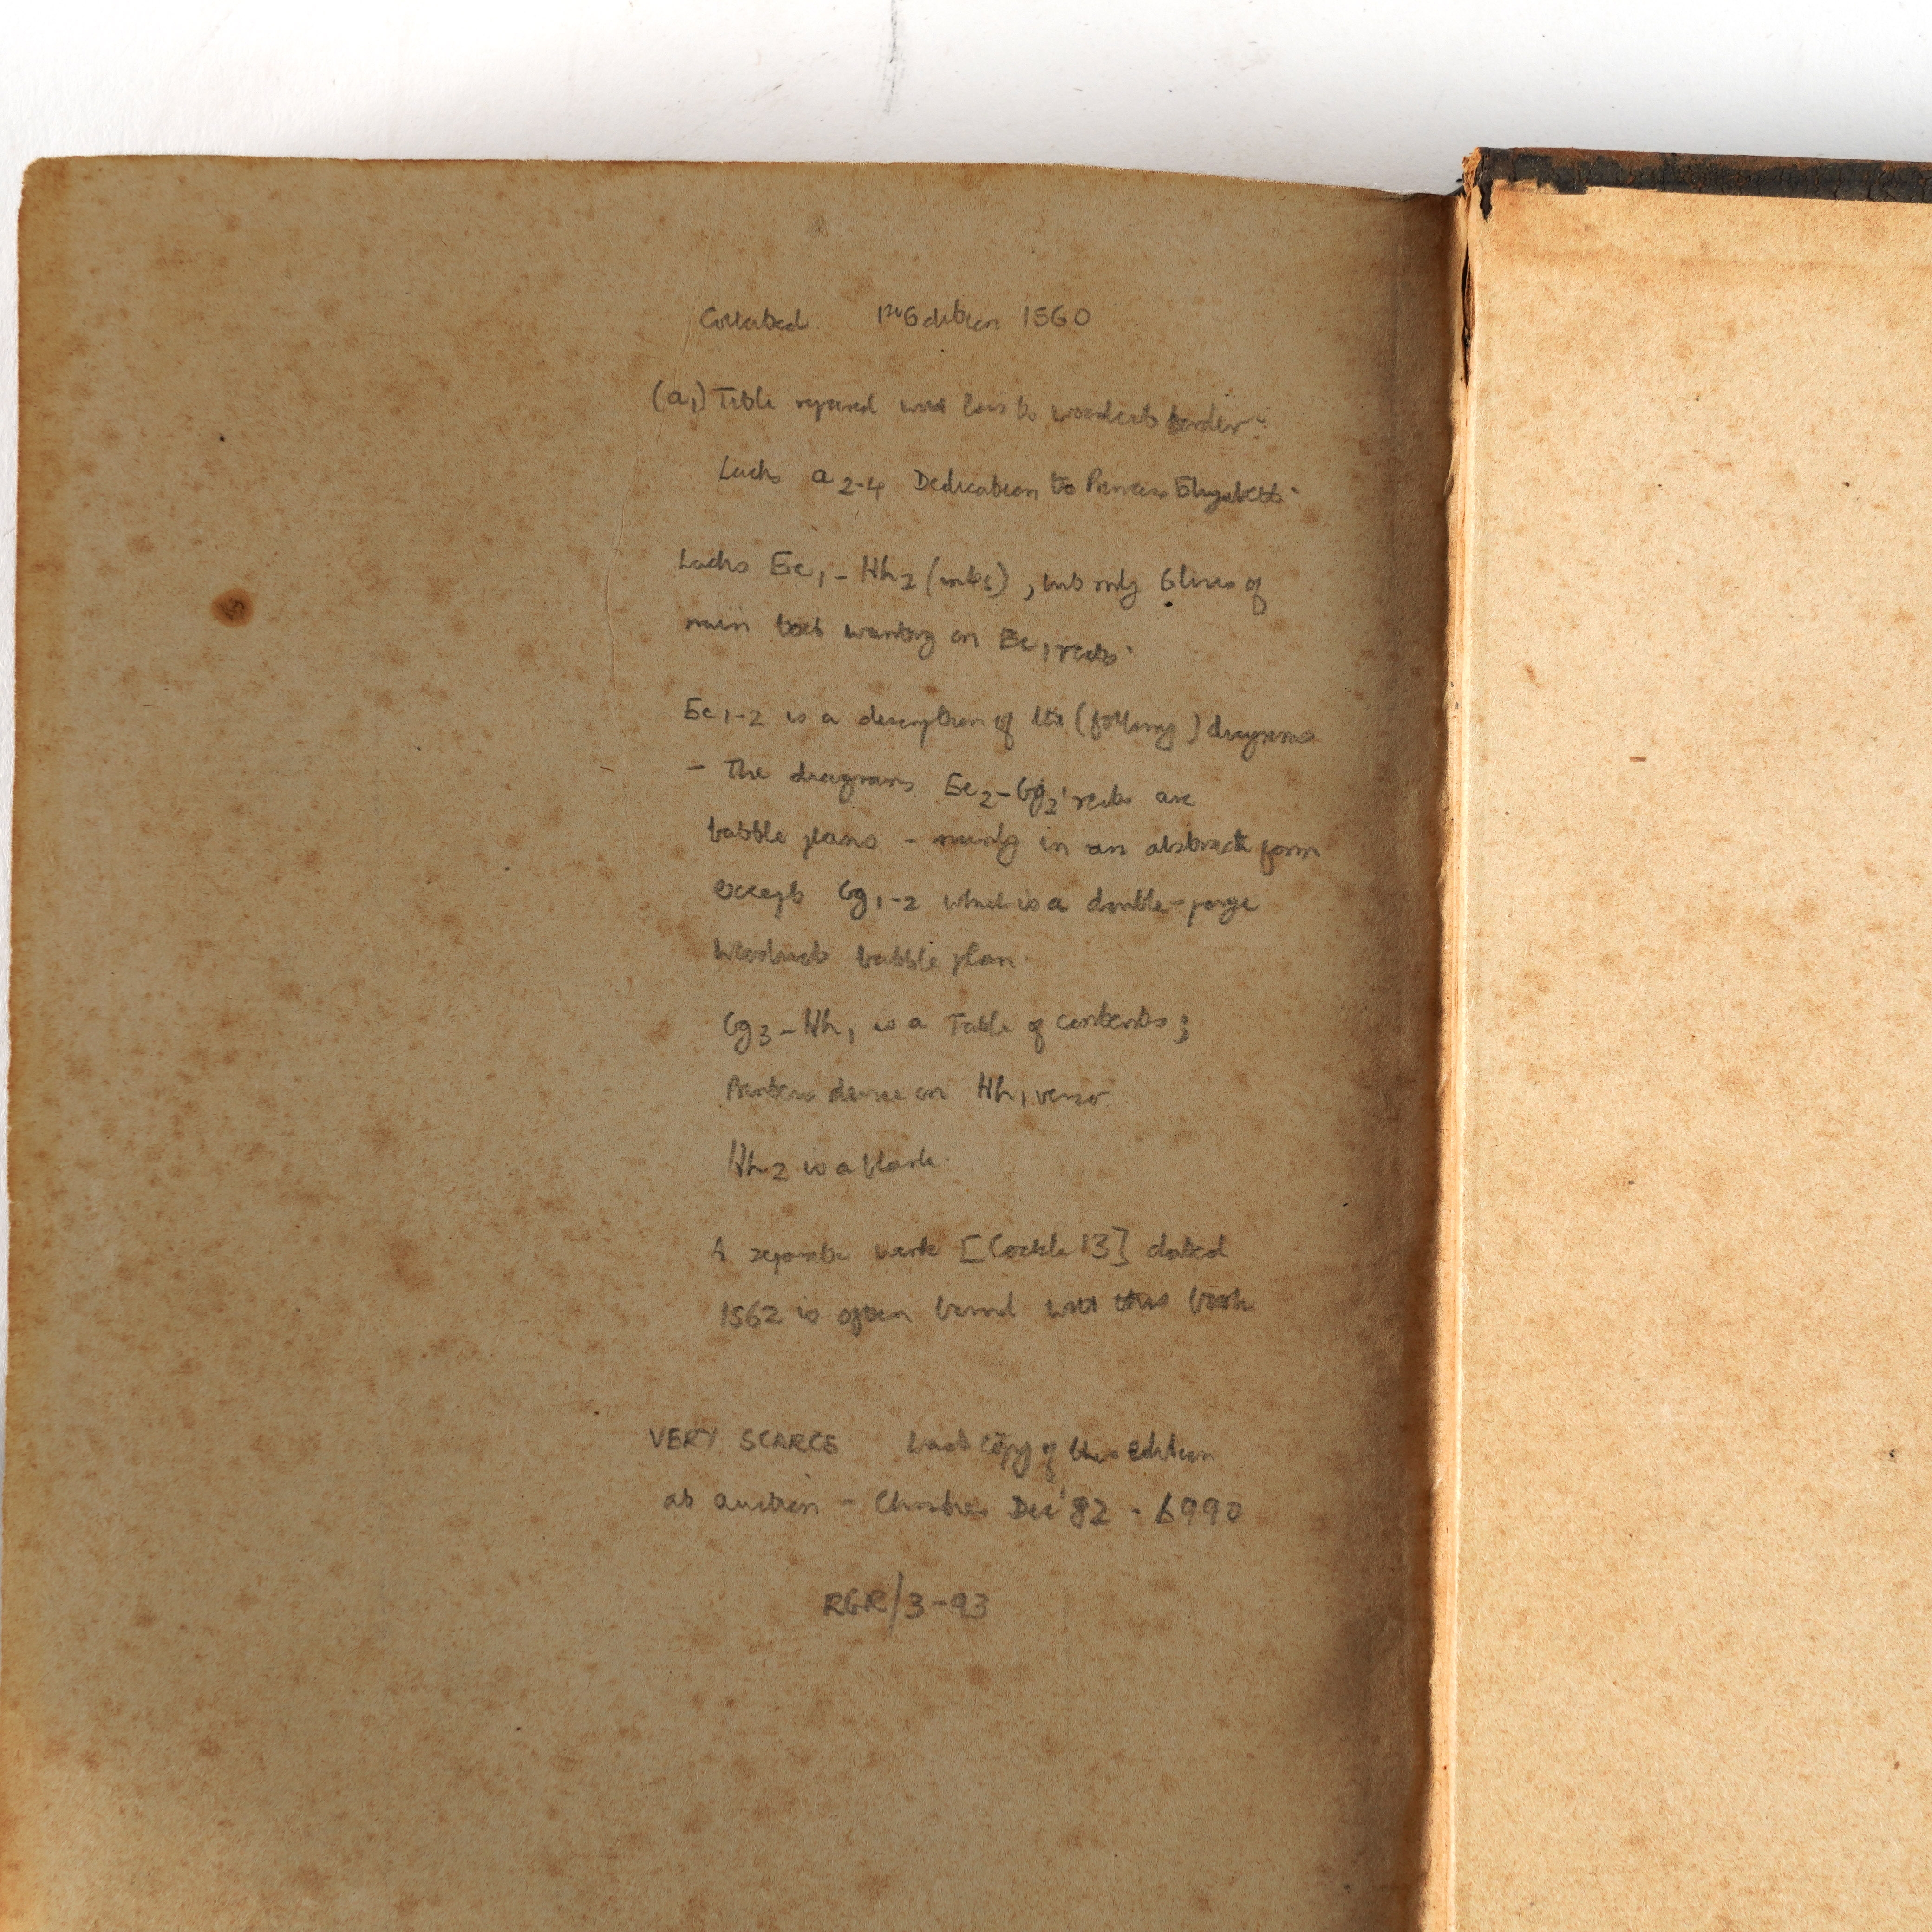 Collated 1st Edition 1560
(a1) Title repaired with loss to woodcut border.
Lacks a2-4 Dedication to Princess Elizabeth.
Lacks Ee1 - Hh2 (), but only 6 lines of
main text wanting on Ee1 recto.
Ee1-2 is a description of the (following) diagrams
- The diagrams Ee2 - Gg2 recto are
battle plans - mainly in an abstract form
except Gg1-2 which is a double-page
woodcut battle plan.
Gg3 - Hh1 is a Table of contents;
Printers device on Hh1 verso
Hh2 is a blank
A separate work [Cockle 13] dated
1562 is often bound with this book
VERY SCARCE Last copy of this edition
at auction - Christies Dec '82 -
RGR/3-93